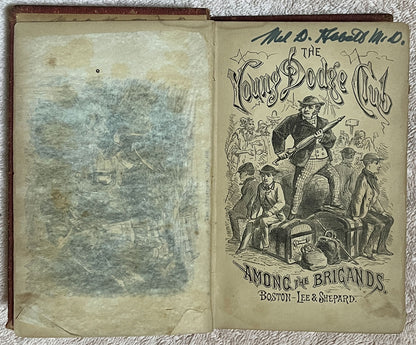 Mel D. M.D.
THE
Young Dodge Club
AMONG THE BRIGANDS.
BOSTON–LEE & SHEPARD.